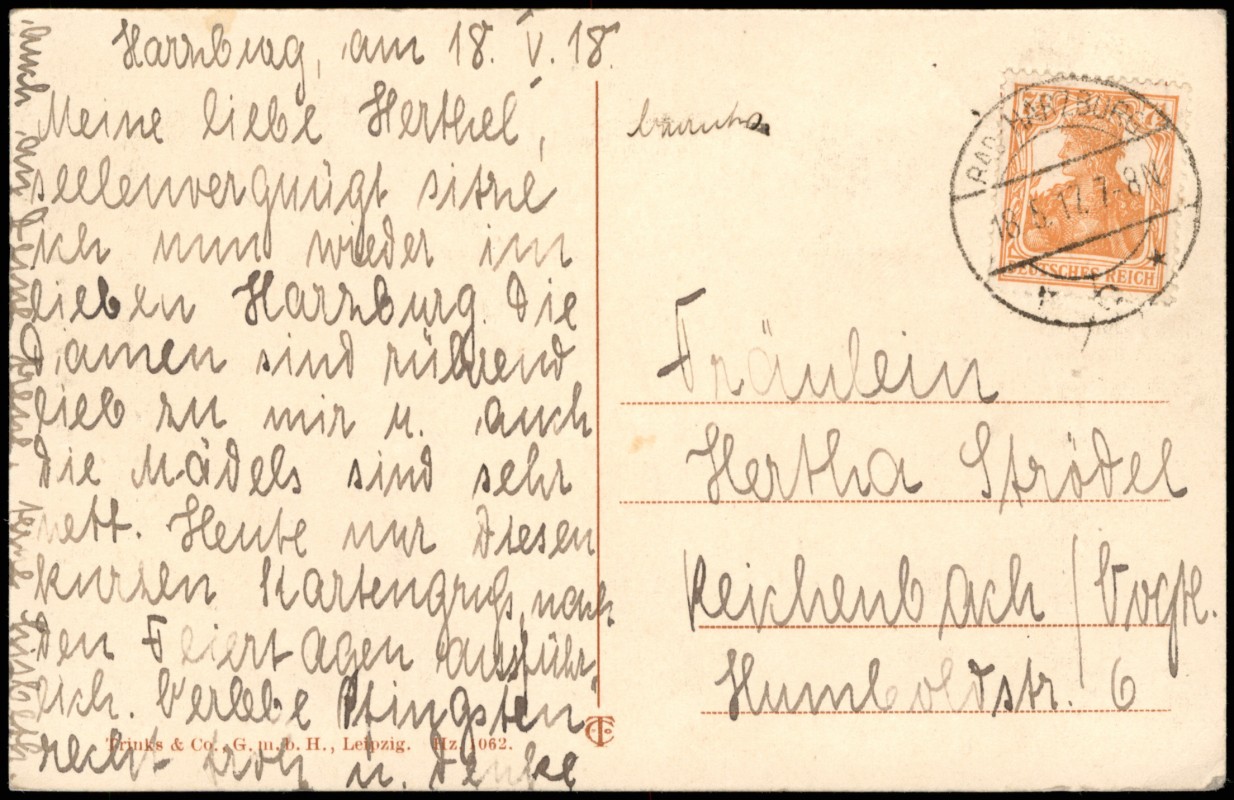 Harzburg, am 18. V. 18.
Meine liebe Herthel,
seelenvergnügt sitze
ich nun wieder im
lieben Harzburg. Die
Damen sind rührend
lieb zu mir u. auch
die Mädels sind sehr
nett. Heute nur diesen
kurzen Kartengruß, nach
den Feiertagen ausführ-
lich. Verlebe Pfingsten
recht froh u. denke
auch an Deine
Trinks & Co., G. m. b. H., Leipzig. Hz. 1062.
BAD HARZBURG
18.5.17. 7-8N
DEUTSCHES REICH
Fräulein
Hertha Strödel
Reichenbach / Vogtl.
Humboldstr. 6